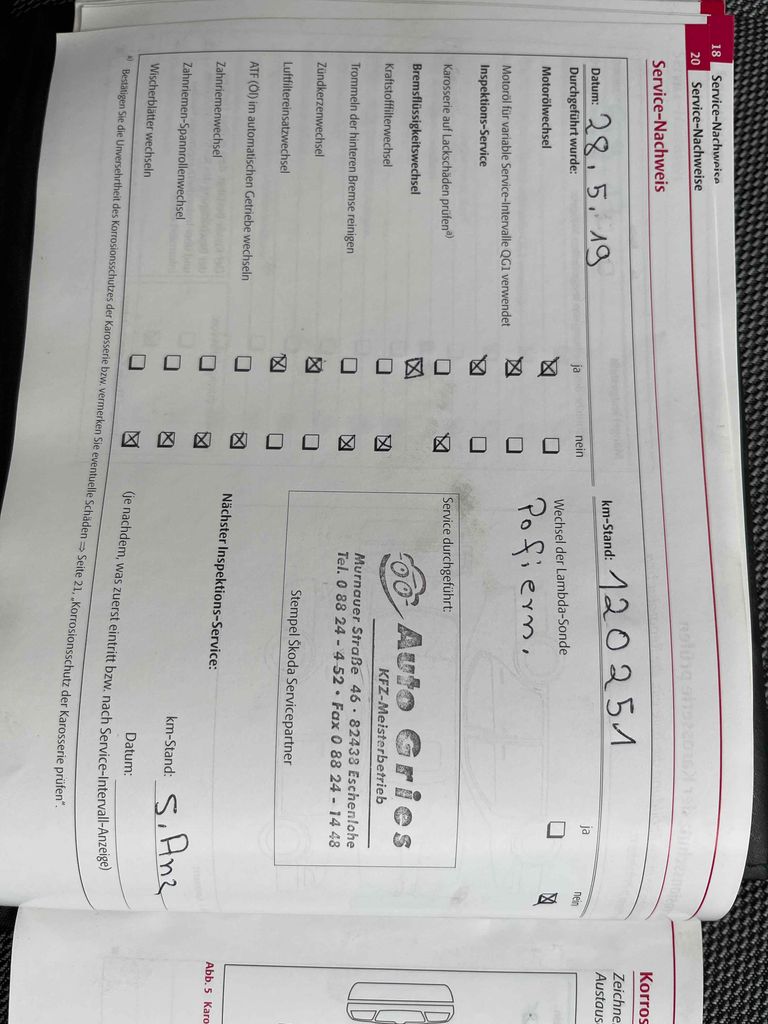 18 Service-Nachweise
20 Service-Nachweise
Service-Nachweis
Datum: 28.5.19
km-Stand: 120251
Durchgeführt wurde: ja nein
ja nein
Motorölwechsel
Wechsel der Lambda-Sonde
Motoröl für variable Service-Intervalle QG1 verwendet
Inspektions-Service
Karosserie auf Lackschäden prüfen a)
Service durchgeführt:
Bremsflüssigkeitswechsel
Kraftstofffilterwechsel
Trommeln der hinteren Bremse reinigen
Zündkerzenwechsel
Luftfiltereinsatzwechsel
ATF (Öl) im automatischen Getriebe wechseln
Zahnriemenwechsel
Zahnriemen-Spannrollenwechsel
Wischerblätter wechseln
Auto Gries
KFZ-Meisterbetrieb
Murnauer Straße 46 · 82438 Eschenlohe
Tel. 0 88 24 - 4 52 · Fax 0 88 24 - 14 48
Stempel Škoda Servicepartner
Nächster Inspektions-Service:
km-Stand: S. Anz
Datum:
(je nachdem, was zuerst eintritt bzw. nach Service-Intervall-Anzeige)
a) Bestätigen Sie die Unversehrtheit des Korrosionsschutzes der Karosserie bzw. vermerken Sie eventuelle Schäden ⇒ Seite 21, „Korrosionsschutz der Karosserie prüfen“.
Korros
Zeichne
Austaus
Abb. 5 Karo